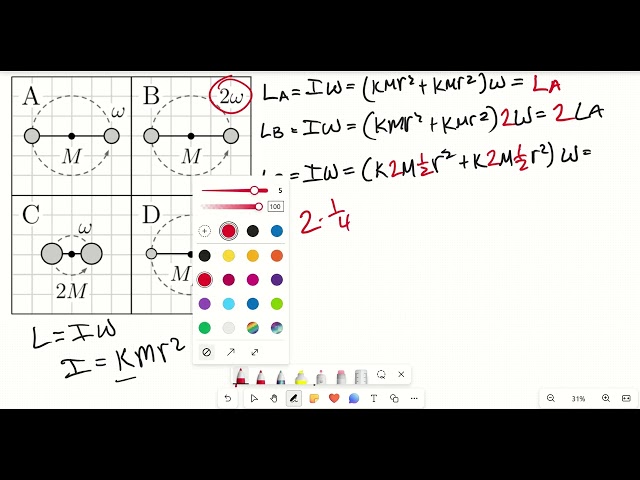 A
ω
M
B
2ω
M
C
ω
2M
D
M
L_A = Iω = (KMr² + KMr²)ω = L_A
L_B = Iω = (KMr² + KMr²)2ω = 2L_A
= Iω = (K2M½r² + K2M½r²)ω =
2·¼
L = Iω
I = KMr²
5
100
T
31%